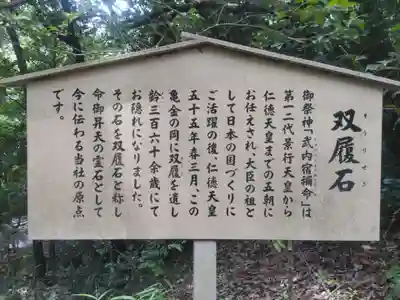 双履石
そうりせき
御祭神「武内宿禰命」は
第一二代景行天皇から
仁徳天皇までの五朝に
お任えされ、大臣の祖と
して日本の国づくりに
ご活躍の後、仁徳天皇
五十五年春三月、この
亀金の岡に双履を遺し
齢三百六十余歳にて
お隠れになりました。
その石を双履石と称し
命御昇天の霊石として
今に伝わる当社の原点
です。